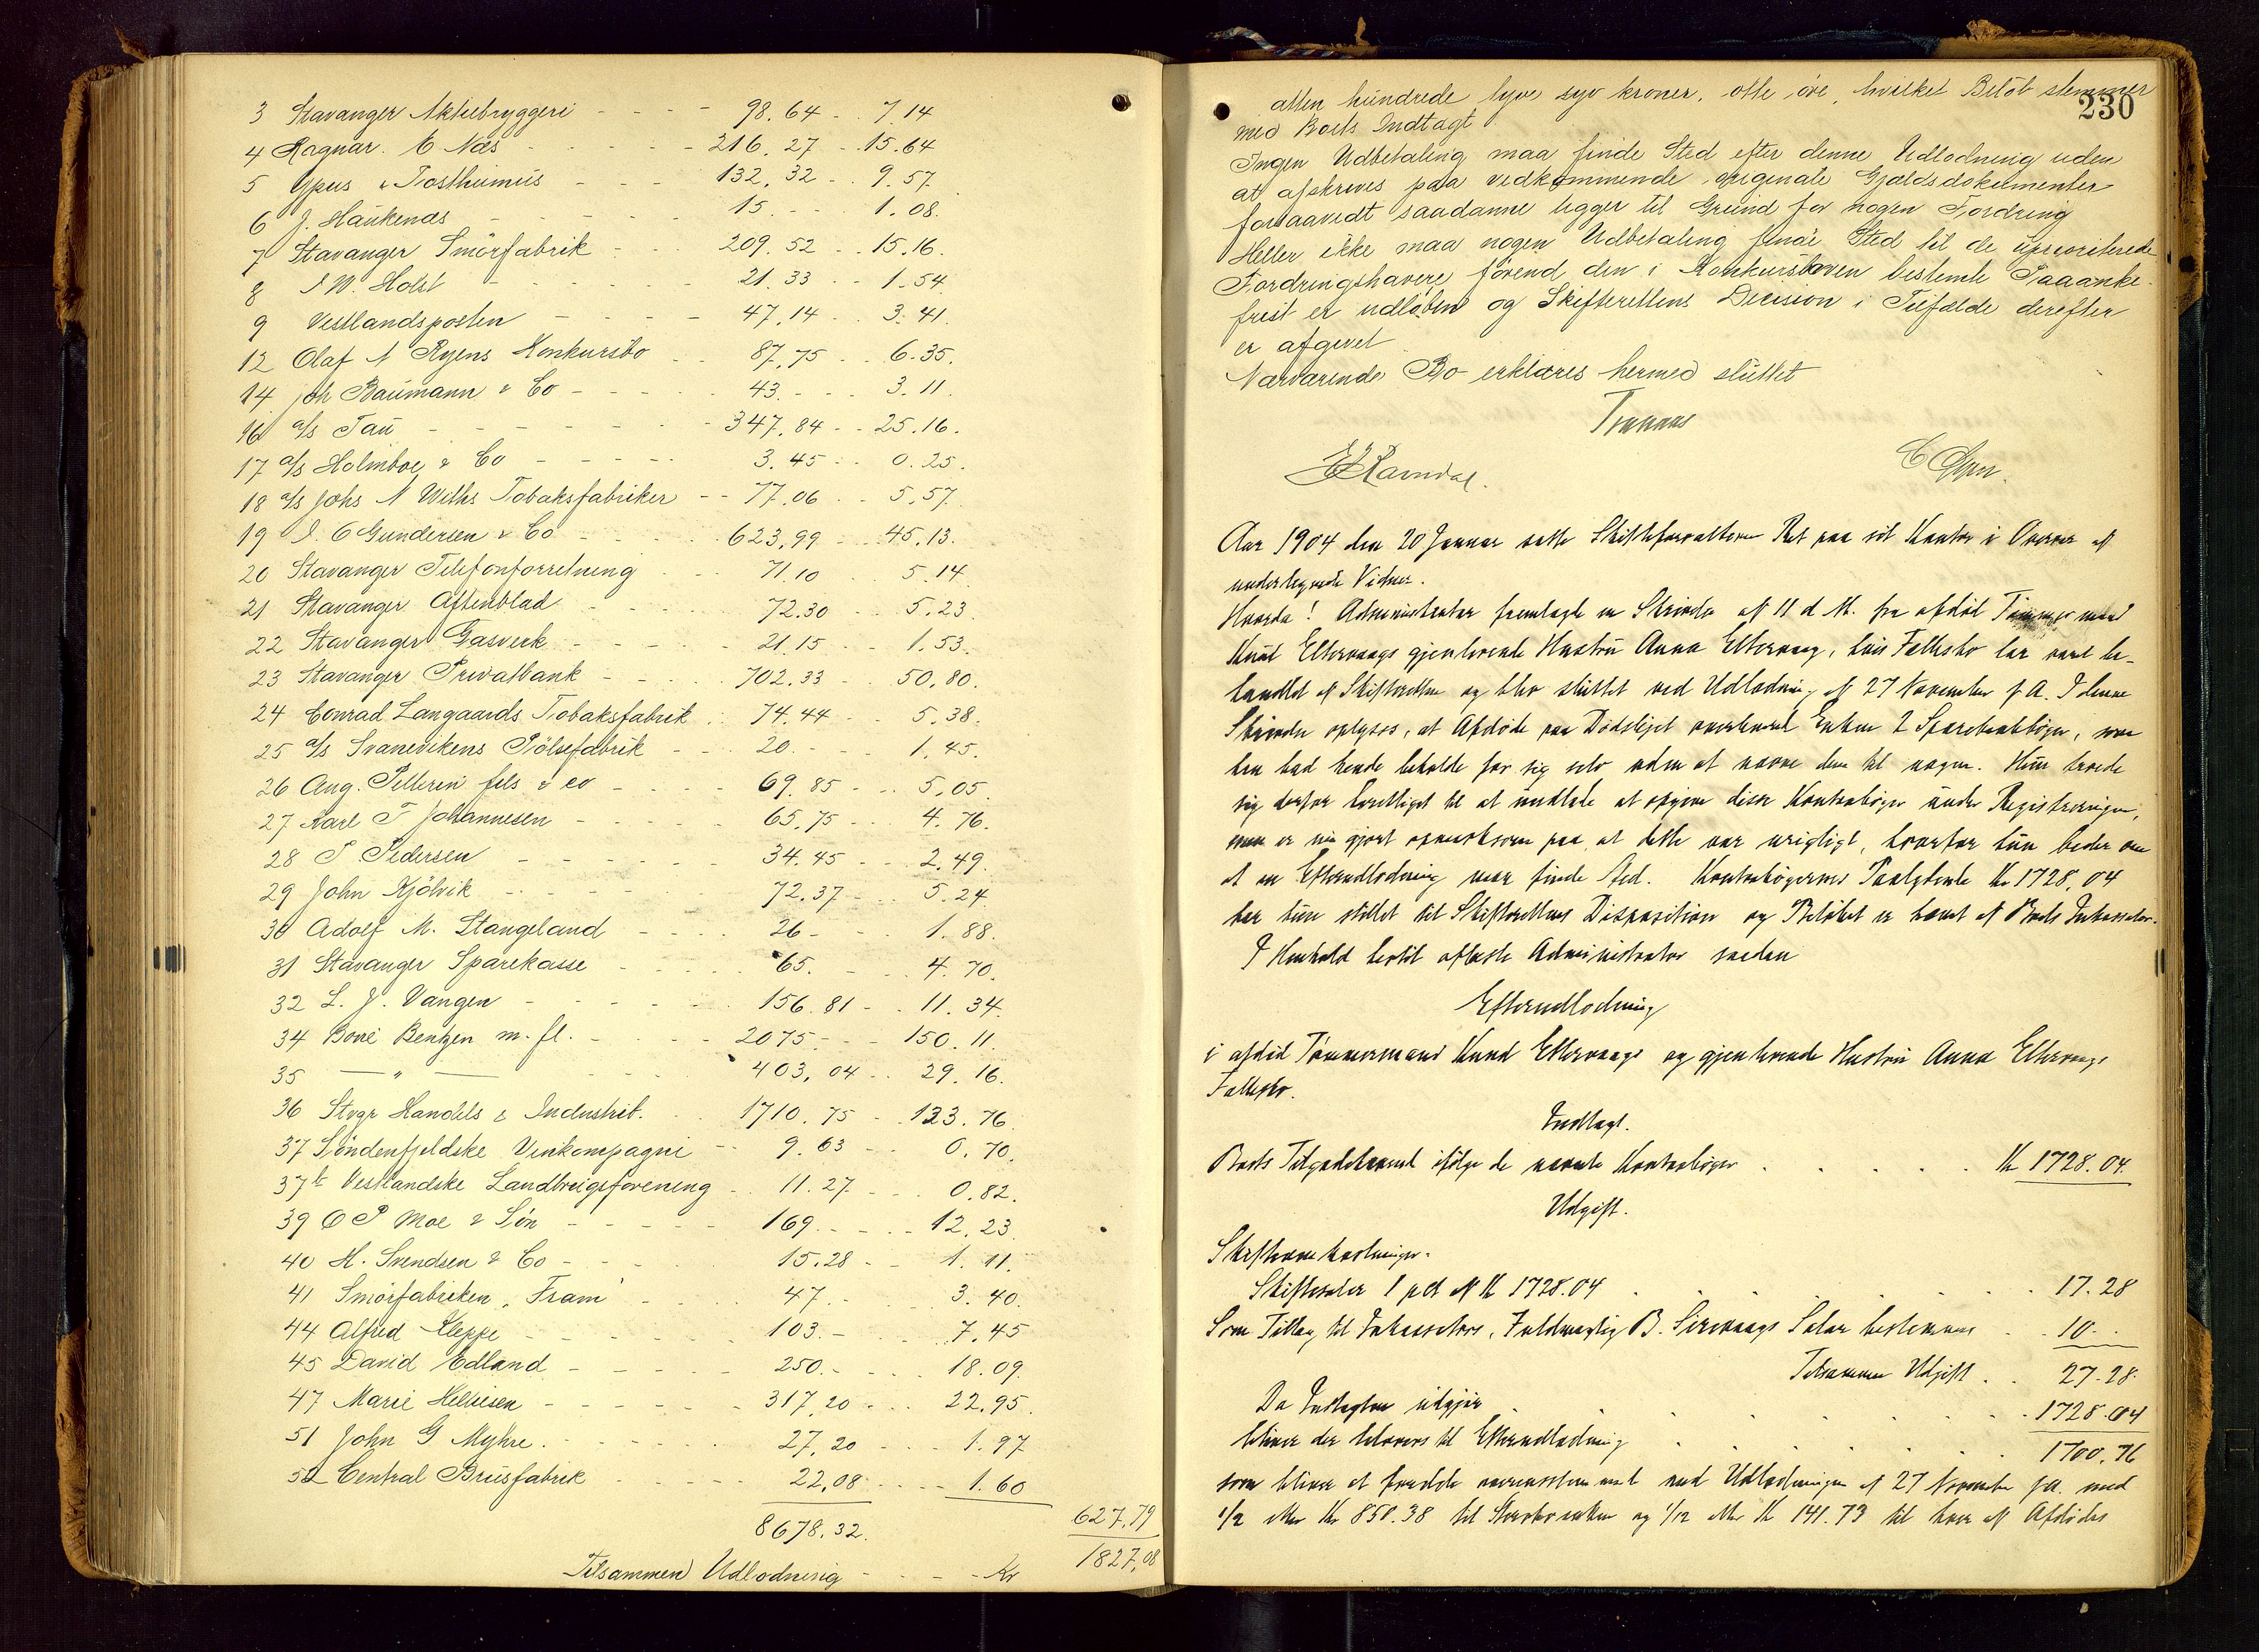 3 Stavanger Aktiebryggeri - - - 98.64 - - 7.14
4 Ragnar. C Næs - - - - 216.27 - 15.64
5 Ypus & Posthumus - - - 132.32 - 9.57
6 J. Haukenæs - - - - 15. - - - 1.08.
7 Stavanger Smörfabrik - - 209.52 - - 15.16.
8 P W. Holst - - - - - 21.33 - - 1.54
9 Vestlandsposten - - - - 47.14 - - 3.41.
12 Olaf N Ryens Konkursbo - - 87.75 - - 6.35.
14 joh Baumann & Co - - - - 43. - - - 3.11.
16 a/s Tau - - - - - - - 347.84 - - 25.16.
17 a/s Holmboe & Co - - - - 3.45 - - 0.25.
18 a/s Johs N Withs Tobaksfabriker - - 77.06 - - 5.57.
19 J. C Gundersen & Co - - - 623.99 - - 45.13.
20 Stavanger Telefonforretning - - 71.10 - - 5.14.
21 Stavanger Aftenblad - - - 72.30 - - 5.23
22 Stavanger Gasverk - - - 21.15 - - 1.53.
23 Stavanger Privatbank - - - 702.33 - - 50.80.
24 Conrad Langaards Tobaksfabrik - 74.44 - - 5.38.
25 a/s Svanevikens Pölsefabrik - - 20. - - - 1.45.
26 Aug. Pellerin fils & co - - - 69.85 - - 5.05.
27 Karl T Johannesen - - - - 65.75 - - 4.76.
28 P Pedersen - - - - - 34.45 - - 2.49.
29 John Kjölvik - - - - - 72.37 - - 5.24
30 Adolf M. Stangeland - - - 26 - - - 1.88.
31 Stavanger Sparekasse - - - 65. - - 4.70.
32 L. J. Vangen - - - - 156.81 - - 11.34.
34 Bowe Bentzen m. fl. - - - 2075 - - - 150.11.
35 — " — - - - 403.04 - - 29.16.
36 Stvgr Handels & Industrib. - - 1710.75 - 123.76.
37 Söndenfjeldske Vinkompagni - - 9.63 - - 0.70.
37b Vestlandske Landbrugsforening - - 11.27 - - - 0.82.
39 O P Moe & Sön - - - - 169. - - - 12.23.
40 H. Svendsen & Co - - - 15.28 - - 1.11.
41 Smörfabriken „Fram" - - - 47. - - 3.40.
44 Alfred Kleppe - - - - 103. - - 7.45
45 David Edland - - - - 250. - - - 18.09.
47 Marie Helliesen - - - - 317.20 - - 22.95.
51 John G Myhre. - - - - 27.20 - - - 1.97
52 Central Brusfabrik - - - - 22.08 - - - 1.60
8678.32. 627.79
Tilsammen Udlodning - - - - Kr 1827.08
230
atten hundrede tyve syv kroner, otte øre, hvilket Beløb stemmer
med Boets Indtægt.
Ingen Udbetaling maa finde Sted efter denne Udlodning uden
at afskrives paa vedkommende originale Gjældsdokumenter
forsaavidt saadanne ligger til Grund for nogen Fordring
Heller ikke maa nogen Udbetaling finde Sted til de uprioriterede
Fordringshavere förend den i Konkursloven bestemte Paaanke-
frist er udløben og Skifterettens Decision i Tilfælde derefter
er afgivet.
Nærværende Bo erklæres hermed sluttet
E Ravndal.
Aar 1904 den 20 Januar satte Skifteforvalteren Ret paa sit Kontor i Overvær af
undertegnede Vidner.
Hvorda! Administrator fremlagde en Skrivelse af 11 d M. fra afdød Tømmermand
Knud Eltervaags gjenlevende Hustru Anna Eltervaag, hvis Fællesbo har været be-
handlet af Skifteretten og blev sluttet ved Udlodning af 27 November f A. I denne
Skrivelse oplyses, at Afdøde paa Dødslejet overleverede Enken 2 Sparebankbøger, som
han bad hende beholde for sig selv uden at nævne dem til nogen. Hun troede
sig derfor berettiget til at undlade at opgive disse Kontrabøger under Registreringen,
men er nu gjort opmærksom paa at dette var urigtigt, hvorfor hun beder om
at en Efterudlodning maa finde Sted. Kontrabøgernes Paalydende Kr 1728,04
har hun stillet til Skifterettens Disposition og Beløbet er hævet af Boets Inkassator.
I Henhold hertil afleste Administrator saadan
Efterudlodning
i afdød Tømmermand Knud Eltervaags og gjenlevende Hustru Anna Eltervaags
Fællesbo.
Indtægt.
Boets Tilgodehavende ifølge de nævnte Kontrabøger . . . . . Kr 1728.04.
Udgift.
Skifteomkostninger.
Skiftesalær 1 pct af Kr 1728.04 . . . . . . . 17.28
Som Tillæg til Inkassators, Fuldmægtig B. Sirevaags Salær bestemmes . . 10. -
Tilsammen Udgift . . 27.28.
Da Indtægten udgjør . . . . . . . 1728.04
bliver der behovers til Efterudlodning . . . . . 1700.76
som bliver at fordele overensstemmende med Udlodningen af 27 November f A. med
1/2 eller Kr 850.38 til Stervboenken og 1/12 eller Kr 141.73 til hver af Afdødes